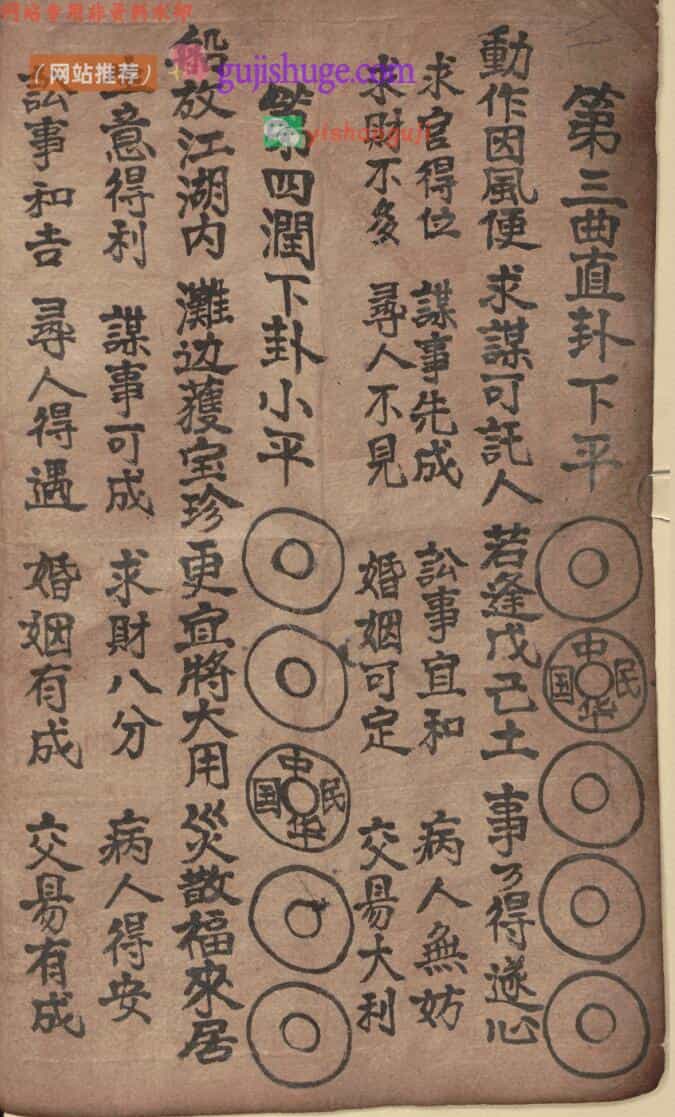 网站会用非资料水印
（网站推荐）
gujishuge.com
yishanguji
第三曲直卦下平
中華民国
動作因風便 求謀可託人 若逢戊己土 事了得遂心
求官得位 謀事先成 訟事宜和 病人無妨
求財不多 尋人不見 婚姻可定 交易大利
第四潤下卦小平
中華民国
船放江湖内 灘边获宝珍 更宜將大用 災散福來居
意得利 謀事可成 求財八分 病人得安
訟事和吉 尋人得遇 婚姻有成 交易有成